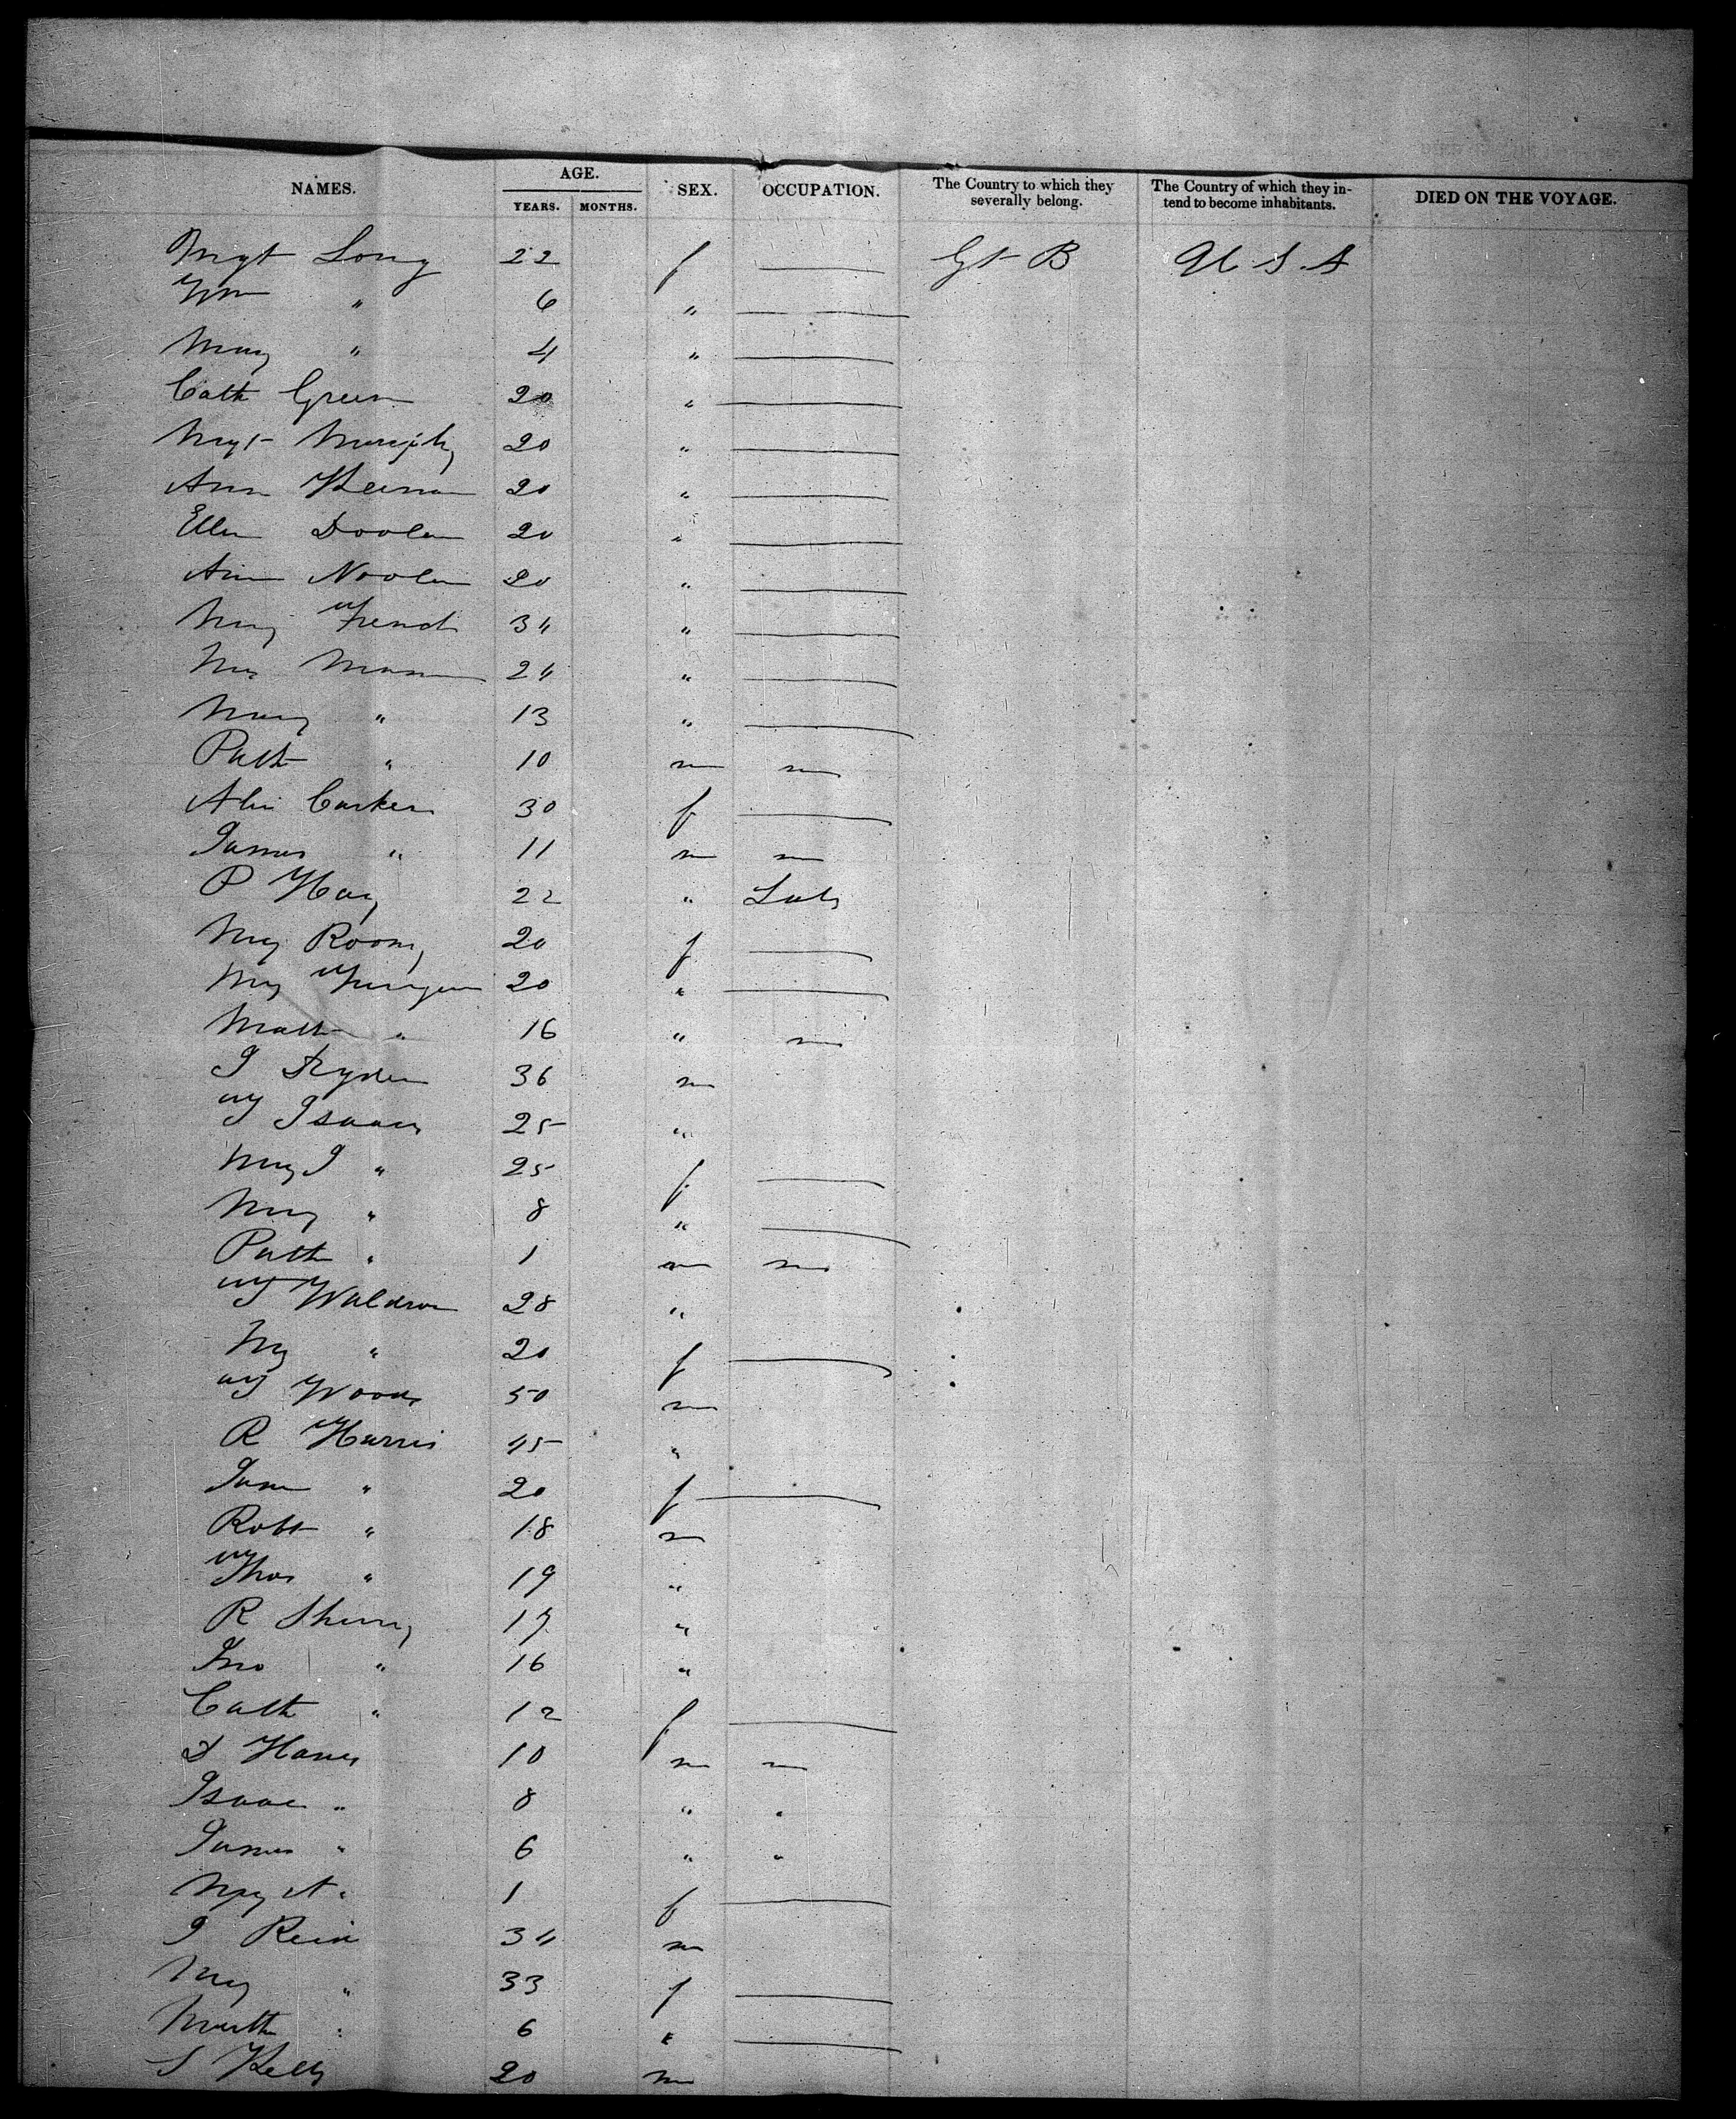 NAMES. AGE. YEARS. MONTHS. SEX. OCCUPATION. The Country to which they severally belong. The Country of which they intend to become inhabitants. DIED ON THE VOYAGE.
Mgt Long 22 f — Gt B U.S.A
Wm " 6 " —
Mary " 4 " —
Cath Green 20 " —
Mgt Murphy 20 " —
Ann Keenan 20 " —
Ellen Doolan 20 " —
Ann Noolan 20 " —
Mary French 34 " —
My 24 " —
Mary " 13 " —
Patk " 10 m
30 f —
James " 11 m
P Hay 22 " Lab
My Roony 20 f —
My 20 " —
16 "
36 m
T Isaacs 25 "
My J " 25 f —
Mary " 8 " —
Patk " 1 m
T Waldron 28 "
My " 20 f —
T Woods 50 m
R Harris 45 "
Jane " 20 f —
Robt " 18 m
Thos " 19 "
R Sherry 17 "
Jno " 16 "
Cath " 12 f —
10 m
Isaac " 8 " "
James " 6 " "
My A " 1 f —
J 34 m
My " 33 f —
Marth " 6 " —
J Kelly 20 m